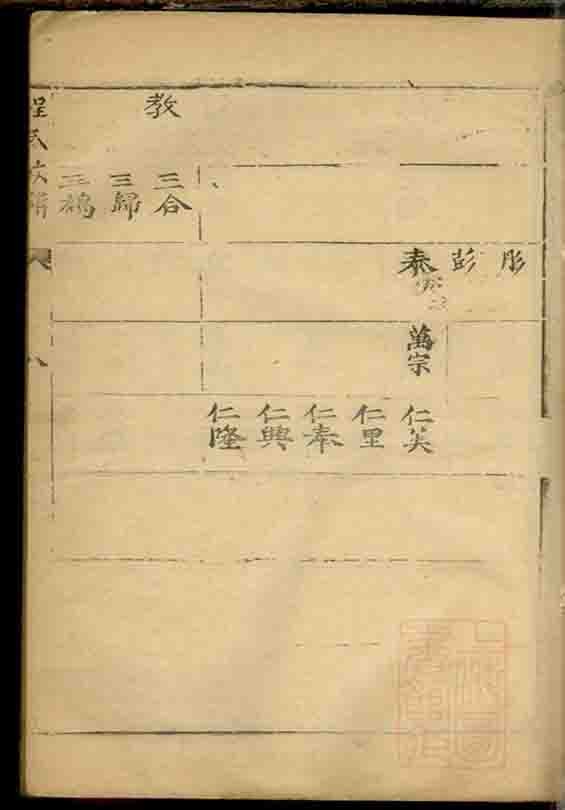 彤
彭
泰
萬宗
仁美
仁里
仁奉
仁興
仁隆
教
三合
三歸
三
程氏族譜
八